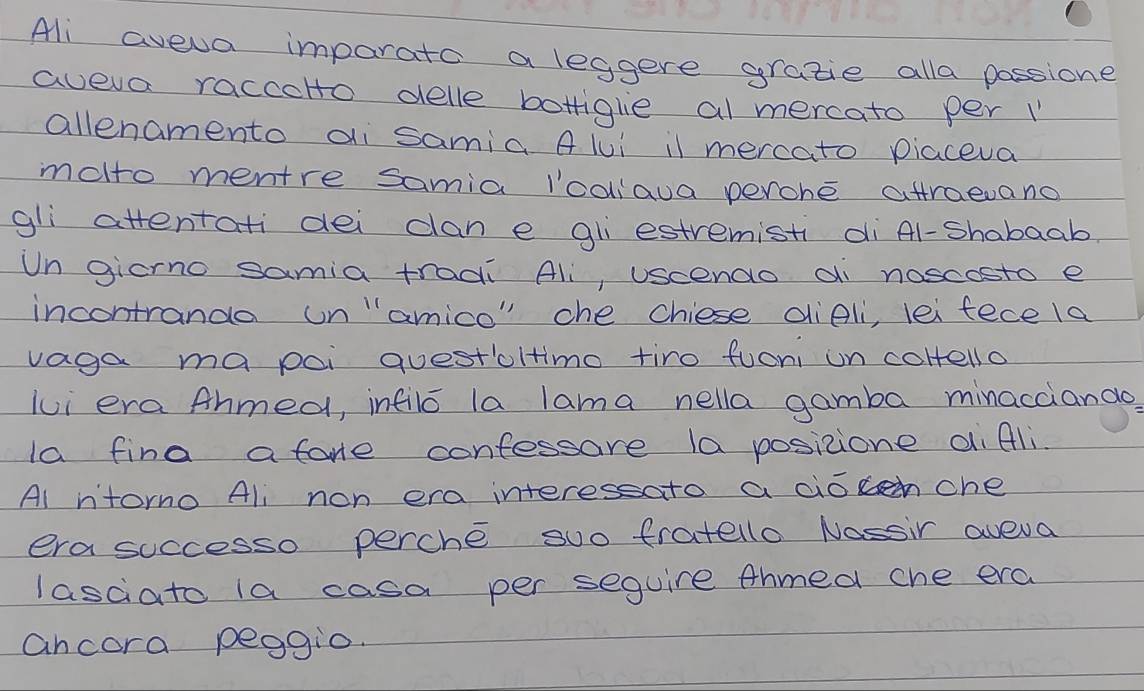 Ali aveva imparato a leggere grazie alla passione
aveva raccolto delle bottiglie al mercato per l'
allenamento di Samia A lui il mercato piaceva
molto mentre Samia l'odiava perché attraevano
gli attentati dei clan e gli estremisti di Al-Shabaab.
Un giorno samia tradì Ali, uscendo di nascosto e
incontrando un "amico" che chiese di Ali, lei fece la
vaga ma poi quest'ultimo tirò fuori un coltello
lui era Ahmed, infilò la lama nella gamba minacciando=
la fino a farle confessare la posizione di Ali.
Al ritorno Ali non era interessato a ciò che
era successo perché suo fratello Nassir aveva
lasciato la casa per seguire Ahmed che era
ancora peggio.